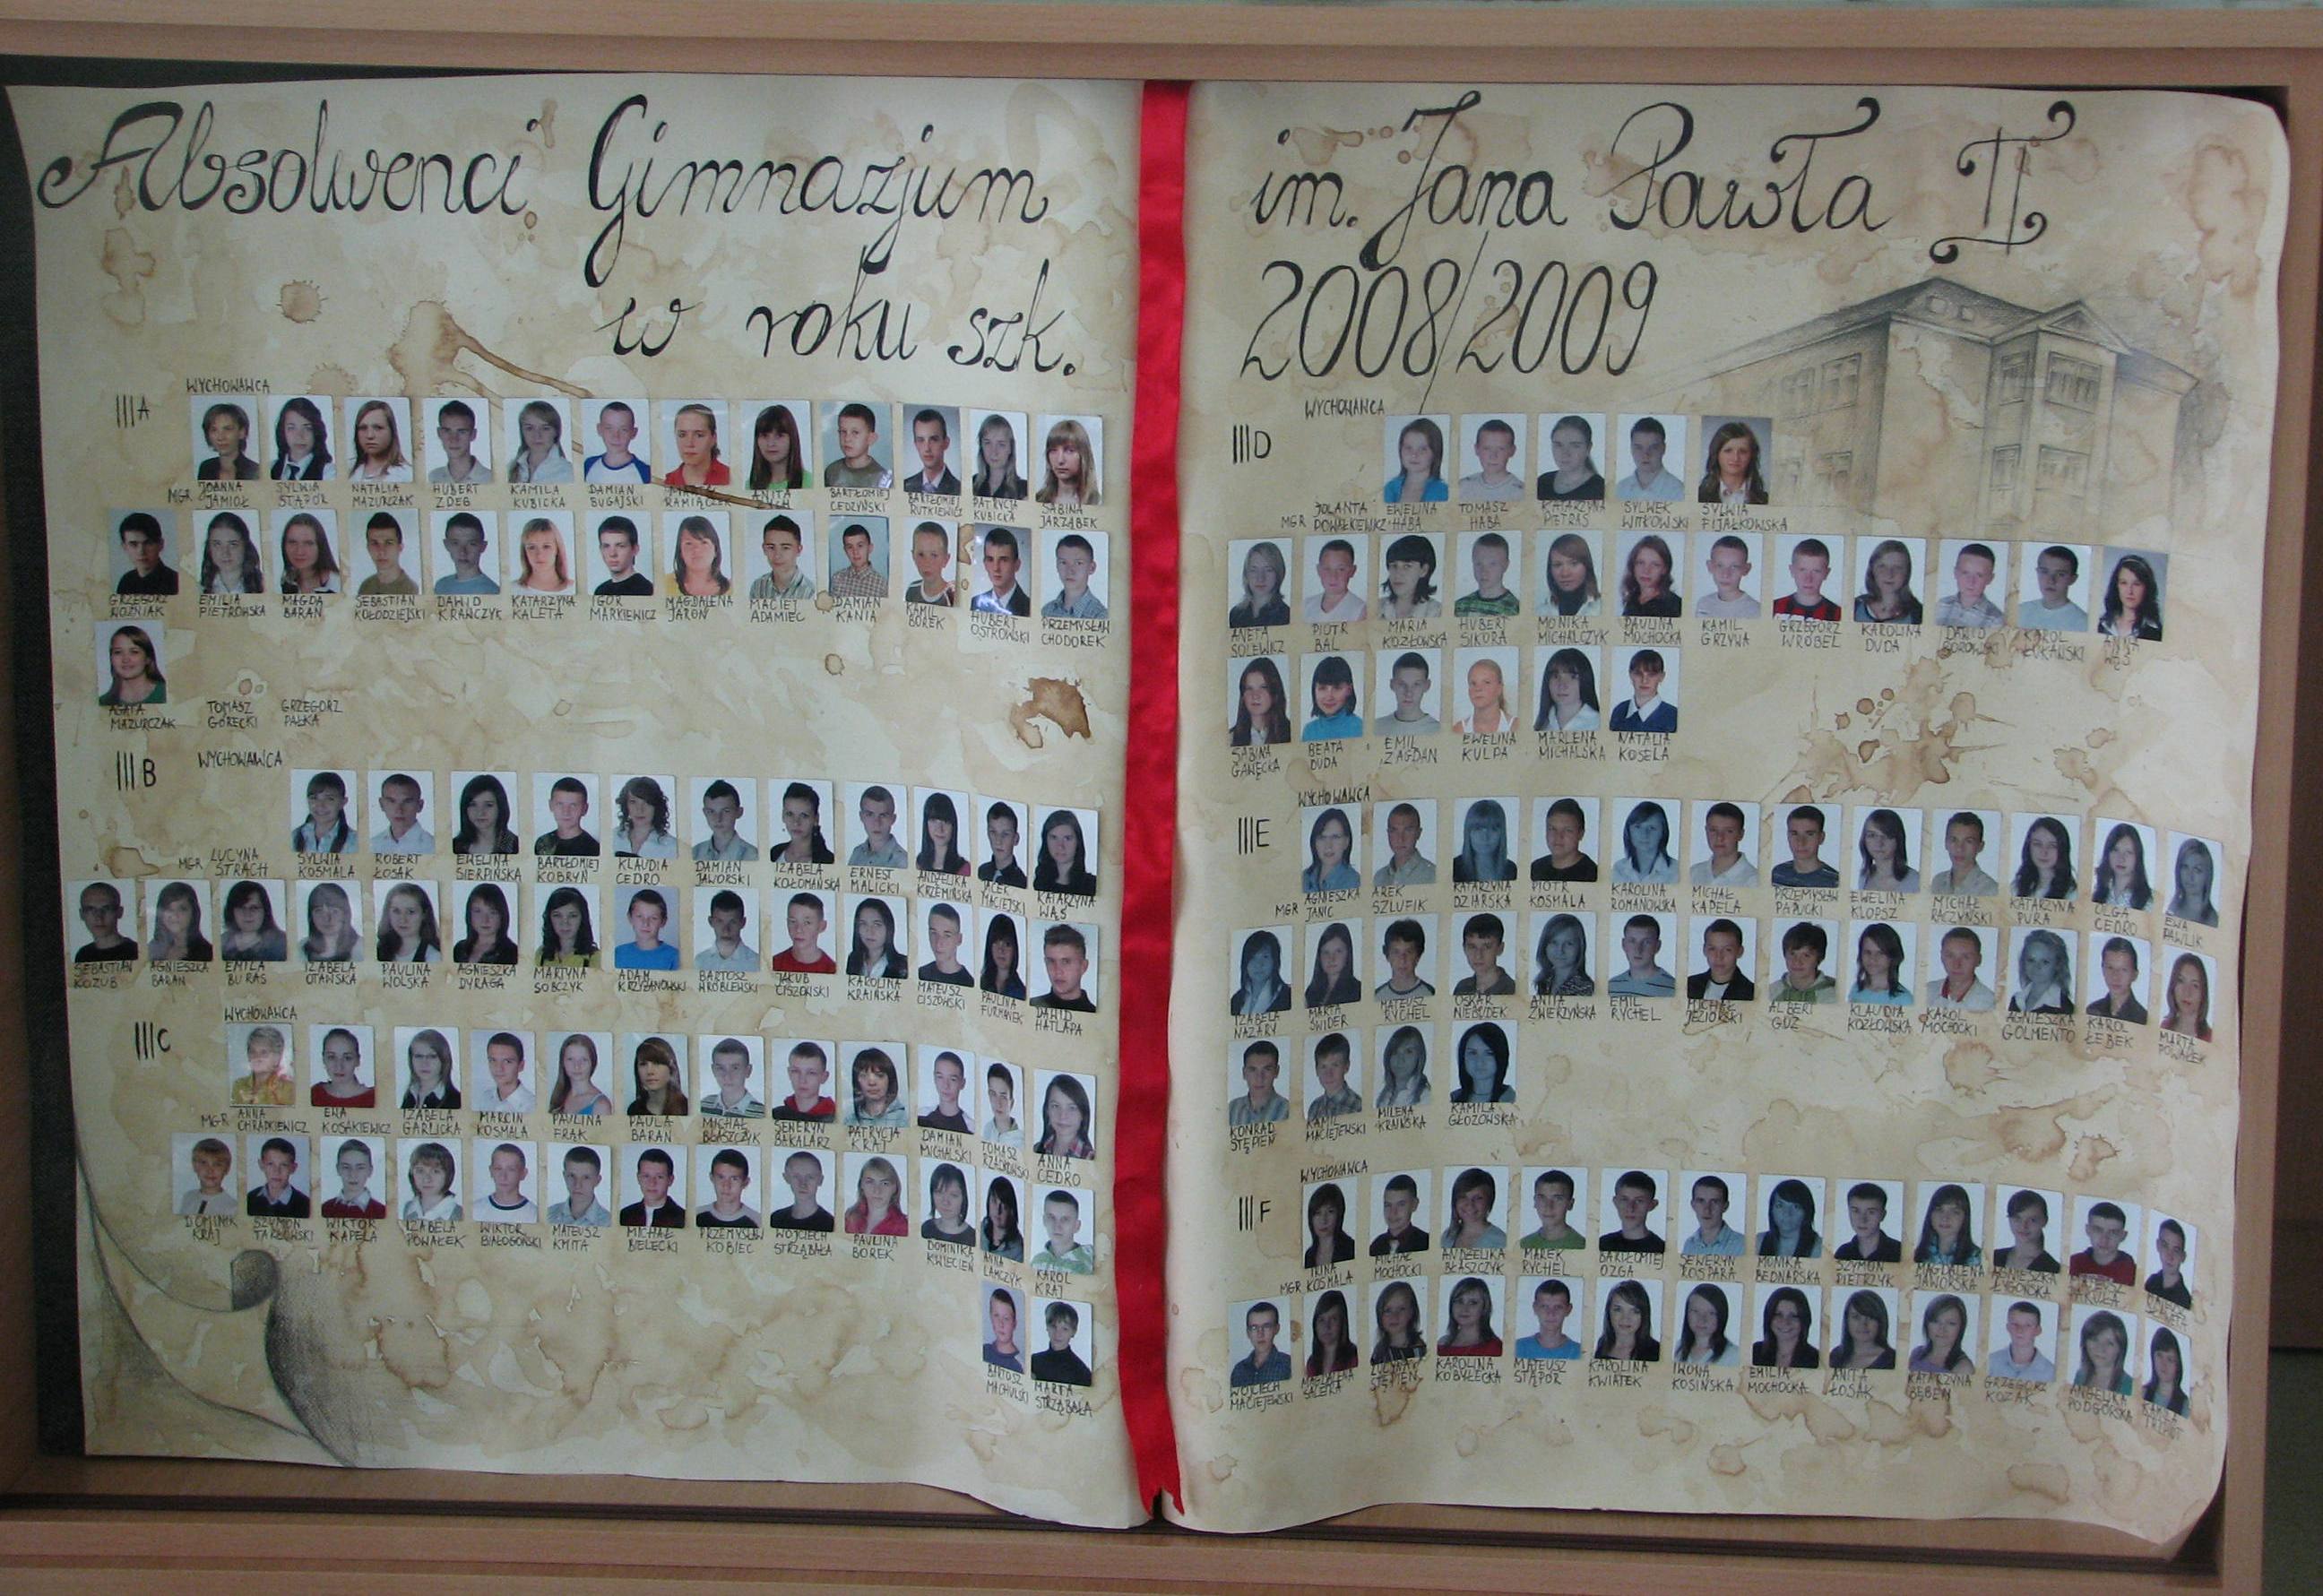 Absolwenci Gimnazjum im. Jana Pawła II
w roku szk. 2008/2009
III A
WYCHOWAWCA
MGR JOANNA JAMIOŁ
SYLWIA STĄPÓR
NATALIA MAZURCZAK
HUBERT ZDEB
KAMILA KUBICKA
DAMIAN BUGAJSKI
RAMIĄCZEK
ANITA
BARTŁOMIEJ CEDZYŃSKI
BARTŁOMIEJ RUTKIEWICZ
PATRYCJA KUBICKA
SABINA JARZĄBEK
GRZEGORZ WOŹNIAK
EMILIA PIETROWSKA
MAGDA BARAN
SEBASTIAN KOŁODZIEJSKI
DAWID KRAWCZYK
KATARZYNA KALETA
IGOR MARKIEWICZ
MAGDALENA JAROŃ
MACIEJ ADAMIEC
DAMIAN KANIA
KAMIL BOREK
HUBERT OSTROWSKI
PRZEMYSŁAW CHODOREK
AGATA MAZURCZAK
TOMASZ GÓRECKI
GRZEGORZ PAŁKA
III B
WYCHOWAWCA
MGR LUCYNA STRACH
SYLWIA KOSMALA
ROBERT ŁOSAK
EWELINA SIERPIŃSKA
BARTŁOMIEJ KOBRYŃ
KLAUDIA CEDRO
DAMIAN JAWORSKI
IZABELA KOŁOMAŃSKA
ERNEST MALICKI
ANDŻELIKA KRZEMIŃSKA
JACEK MACIEJSKI
KATARZYNA WĄS
SEBASTIAN KOZUB
AGNIESZKA BARAN
EMILA BURAS
IZABELA OTAWSKA
PAULINA WOLSKA
AGNIESZKA DYRAGA
MARTYNA SOBCZYK
ADAM KRZYŻANOWSKI
BARTOSZ WRÓBLEWSKI
JAKUB CISZOWSKI
KAROLINA KRAIŃSKA
MATEUSZ CISZOWSKI
PAULINA FURMANEK
DAWID HATLAPA
III C
WYCHOWAWCA
MGR ANNA CHRADKIEWICZ
EWA KOSAKIEWICZ
IZABELA GARLICKA
MARCIN KOSMALA
PAULINA FRĄK
PAULA BARAN
MICHAŁ BŁASZCZYK
SEWERYN BAKALARZ
PATRYCJA KRAJ
DAMIAN MICHALSKI
TOMASZ
ANNA CEDRO
DOMINIK KRAJ
SZYMON TARŁOWSKI
WIKTOR KAPELA
IZABELA POWAŁEK
WIKTOR BIAŁOGOŃSKI
MATEUSZ KMITA
MICHAŁ BIELECKI
PRZEMYSŁAW KOBIEC
WOJCIECH STRZĄBAŁA
PAULINA BOREK
DOMINIKA KWIECIEŃ
ANNA LAMCZYK
KAROL KRAJ
BARTOSZ MACHULSKI
MARTA STRZĄBAŁA
III D
WYCHOWAWCA
MGR JOLANTA POWAŁKIEWICZ
EWELINA HABA
TOMASZ HABA
KATARZYNA PIETRAS
SYLWEK WITKOWSKI
SYLWIA FIJAŁKOWSKA
ANETA SOLEWICZ
PIOTR BAL
MARIA KOZŁOWSKA
HUBERT SIKORA
MONIKA MICHALCZYK
PAULINA MOCHOCKA
KAMIL GRZYWA
GRZEGORZ WRÓBEL
KAROLINA DUDA
DAWID BOROWSKI
KAROL ŁUKAWSKI
ANNA WĄS
SABINA GAWĘCKA
BEATA DUDA
EMIL ZAGDAN
EWELINA KULPA
MARLENA MICHALSKA
NATALIA KOSELA
III E
WYCHOWAWCA
MGR AGNIESZKA JANIC
AREK SZLUFIK
KATARZYNA DZIARSKA
PIOTR KOSMALA
KAROLINA ROMANOWSKA
MICHAŁ KAPELA
PRZEMYSŁAW PAPUCKI
EWELINA KLOPSZ
MICHAŁ RACZYŃSKI
KATARZYNA PURA
OLGA CEDRO
EWA PAWLIK
IZABELA NAZARY
MARTA ŚWIDER
MATEUSZ RYCHEL
OSKAR NIEBUDEK
ANITA ZWIERZYŃSKA
EMIL RYCHEL
MICHAŁ JEZIORSKI
ALBERT GUZ
KLAUDIA KOZŁOWSKA
KAROL MOCHOCKI
AGNIESZKA GOLMENTO
KAROL ŁEBEK
MARTA POWAŁEK
KONRAD STĘPIEŃ
KAMIL MACIEJEWSKI
MILENA KRAIŃSKA
KAMILA GŁOZOWSKA
III F
WYCHOWAWCA
MGR IRINA KOSMALA
MICHAŁ MOCHOCKI
ANDŻELIKA BŁASZCZYK
MAREK RYCHEL
BARTŁOMIEJ OZGA
SEWERYN ROSPARA
MONIKA BEDNARSKA
SZYMON PIETRZYK
MAGDALENA JAWORSKA
AGNIESZKA ŁYGOŃSKA
WOJCIECH MACIEJEWSKI
MAGDALENA SALETRA
STĘPIEŃ
KAROLINA KOBYŁECKA
MATEUSZ STĄPÓR
KAROLINA KWIATEK
IWONA KOSIŃSKA
EMILIA MOCHOCKA
ANITA ŁOSAK
KATARZYNA BĘBEN
GRZEGORZ KOZAK
ANGELIKA PODGÓRSKA